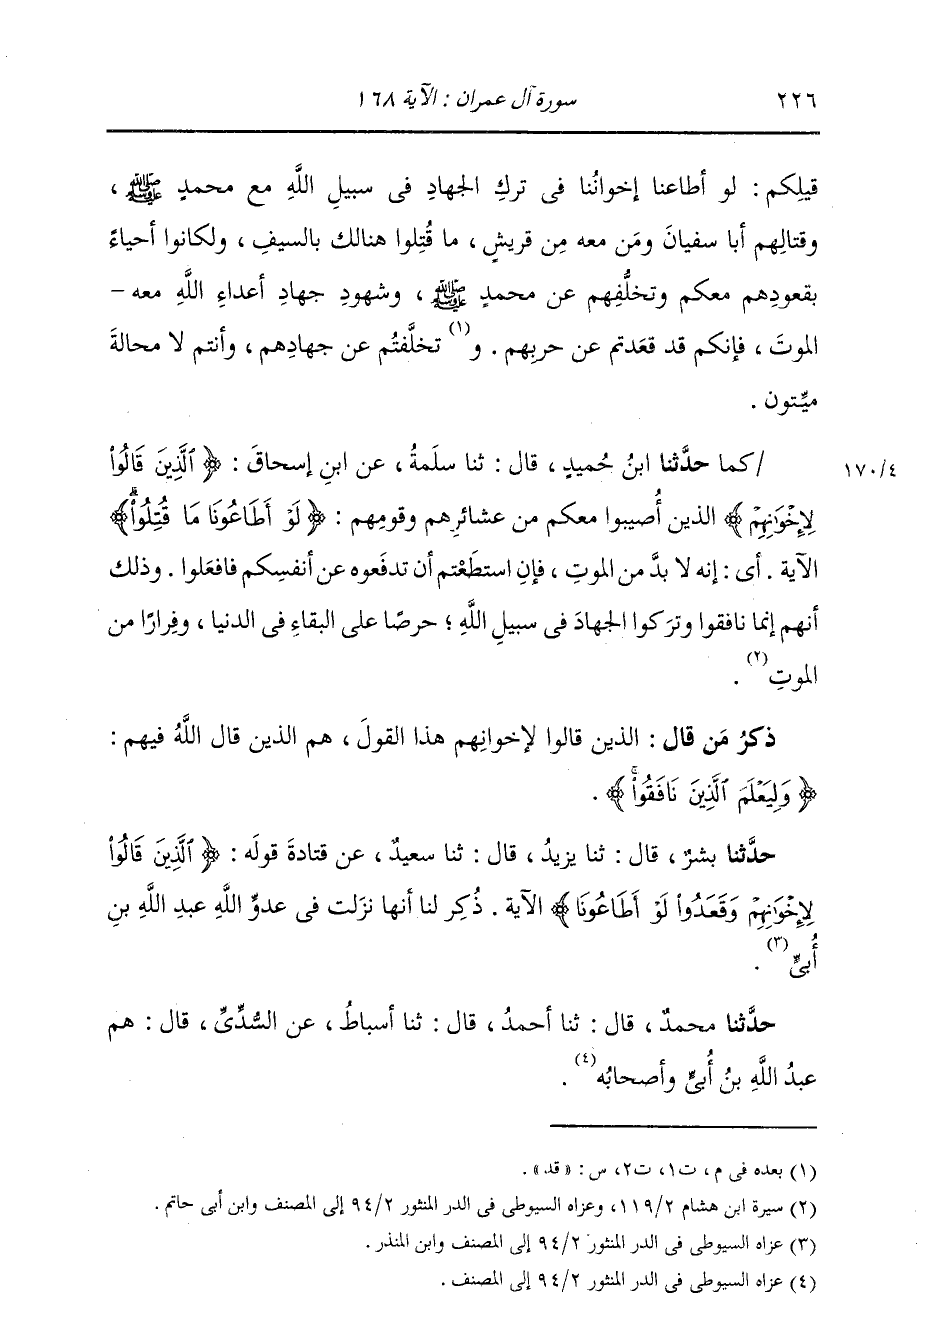 ٢٢٦ سورة آل عمران : الآية ١٦٨
قيلِكم : لو أطاعنا إخوانُنا فى تركِ الجهادِ فى سبيلِ اللَّهِ مع محمدٍ ﷺ ،
وقتالِهم أبا سفيانَ ومَن معه مِن قريشٍ ، ما قُتِلوا هنالك بالسيفِ ، ولكانوا أحياءً
بقعودِهم معكم وتخلُّفِهم عن محمدٍ ﷺ ، وشهودِ جهادِ أعداءِ اللَّهِ معه –
الموتَ ، فإنكم قد قعَدتم عن حربِهم . و(١) تخلَّفتُم عن جهادِهم ، وأنتم لا محالةَ
ميِّتون .
١٧٠/٤ /كما حدَّثنا ابنُ حُميدٍ ، قال : ثنا سلَمةُ ، عن ابنِ إسحاقَ : ﴿ ٱلَّذِينَ قَالُوا۟
لِإِخْوَٰنِهِمْ ﴾ الذين أُصيبوا معكم من عشائرِهم وقومِهم : ﴿ لَوْ أَطَاعُونَا مَا قُتِلُوا۟ۗ ﴾
الآية . أى : إنه لا بدَّ من الموتِ ، فإنِ استطَعْتم أن تدفَعوه عن أنفسِكم فافعَلوا . وذلك
أنهم إنما نافقوا وترَكوا الجهادَ فى سبيلِ اللَّهِ ؛ حرصًا على البقاءِ فى الدنيا ، وفِرارًا من
الموتِ(٢) .
ذكرُ مَن قال : الذين قالوا لإخوانِهم هذا القولَ ، هم الذين قال اللَّهُ فيهم :
﴿ وَلِيَعْلَمَ ٱلَّذِينَ نَافَقُوا۟ۚ ﴾ .
حدَّثنا بشرٌ ، قال : ثنا يزيدُ ، قال : ثنا سعيدٌ ، عن قتادةَ قولَه : ﴿ ٱلَّذِينَ قَالُوا۟
لِإِخْوَٰنِهِمْ وَقَعَدُوا۟ لَوْ أَطَاعُونَا ﴾ الآية . ذُكِر لنا أنها نزَلت فى عدوِّ اللَّهِ عبدِ اللَّهِ بنِ
أُبىٍّ(٣) .
حدَّثنا محمدٌ ، قال : ثنا أحمدُ ، قال : ثنا أسباطُ ، عن السُّدِّىِّ ، قال : هم
عبدُ اللَّهِ بنُ أُبىٍّ وأصحابُه(٤) .
(١) بعده فى م ، ت١، ت٢، س : « قد» .
(٢) سيرة ابن هشام ١١٩/٢، وعزاه السيوطى فى الدر المنثور ٩٤/٢ إلى المصنف وابن أبى حاتم .
(٣) عزاه السيوطى فى الدر المنثور ٩٤/٢ إلى المصنف وابن المنذر .
(٤) عزاه السيوطى فى الدر المنثور ٩٤/٢ إلى المصنف .